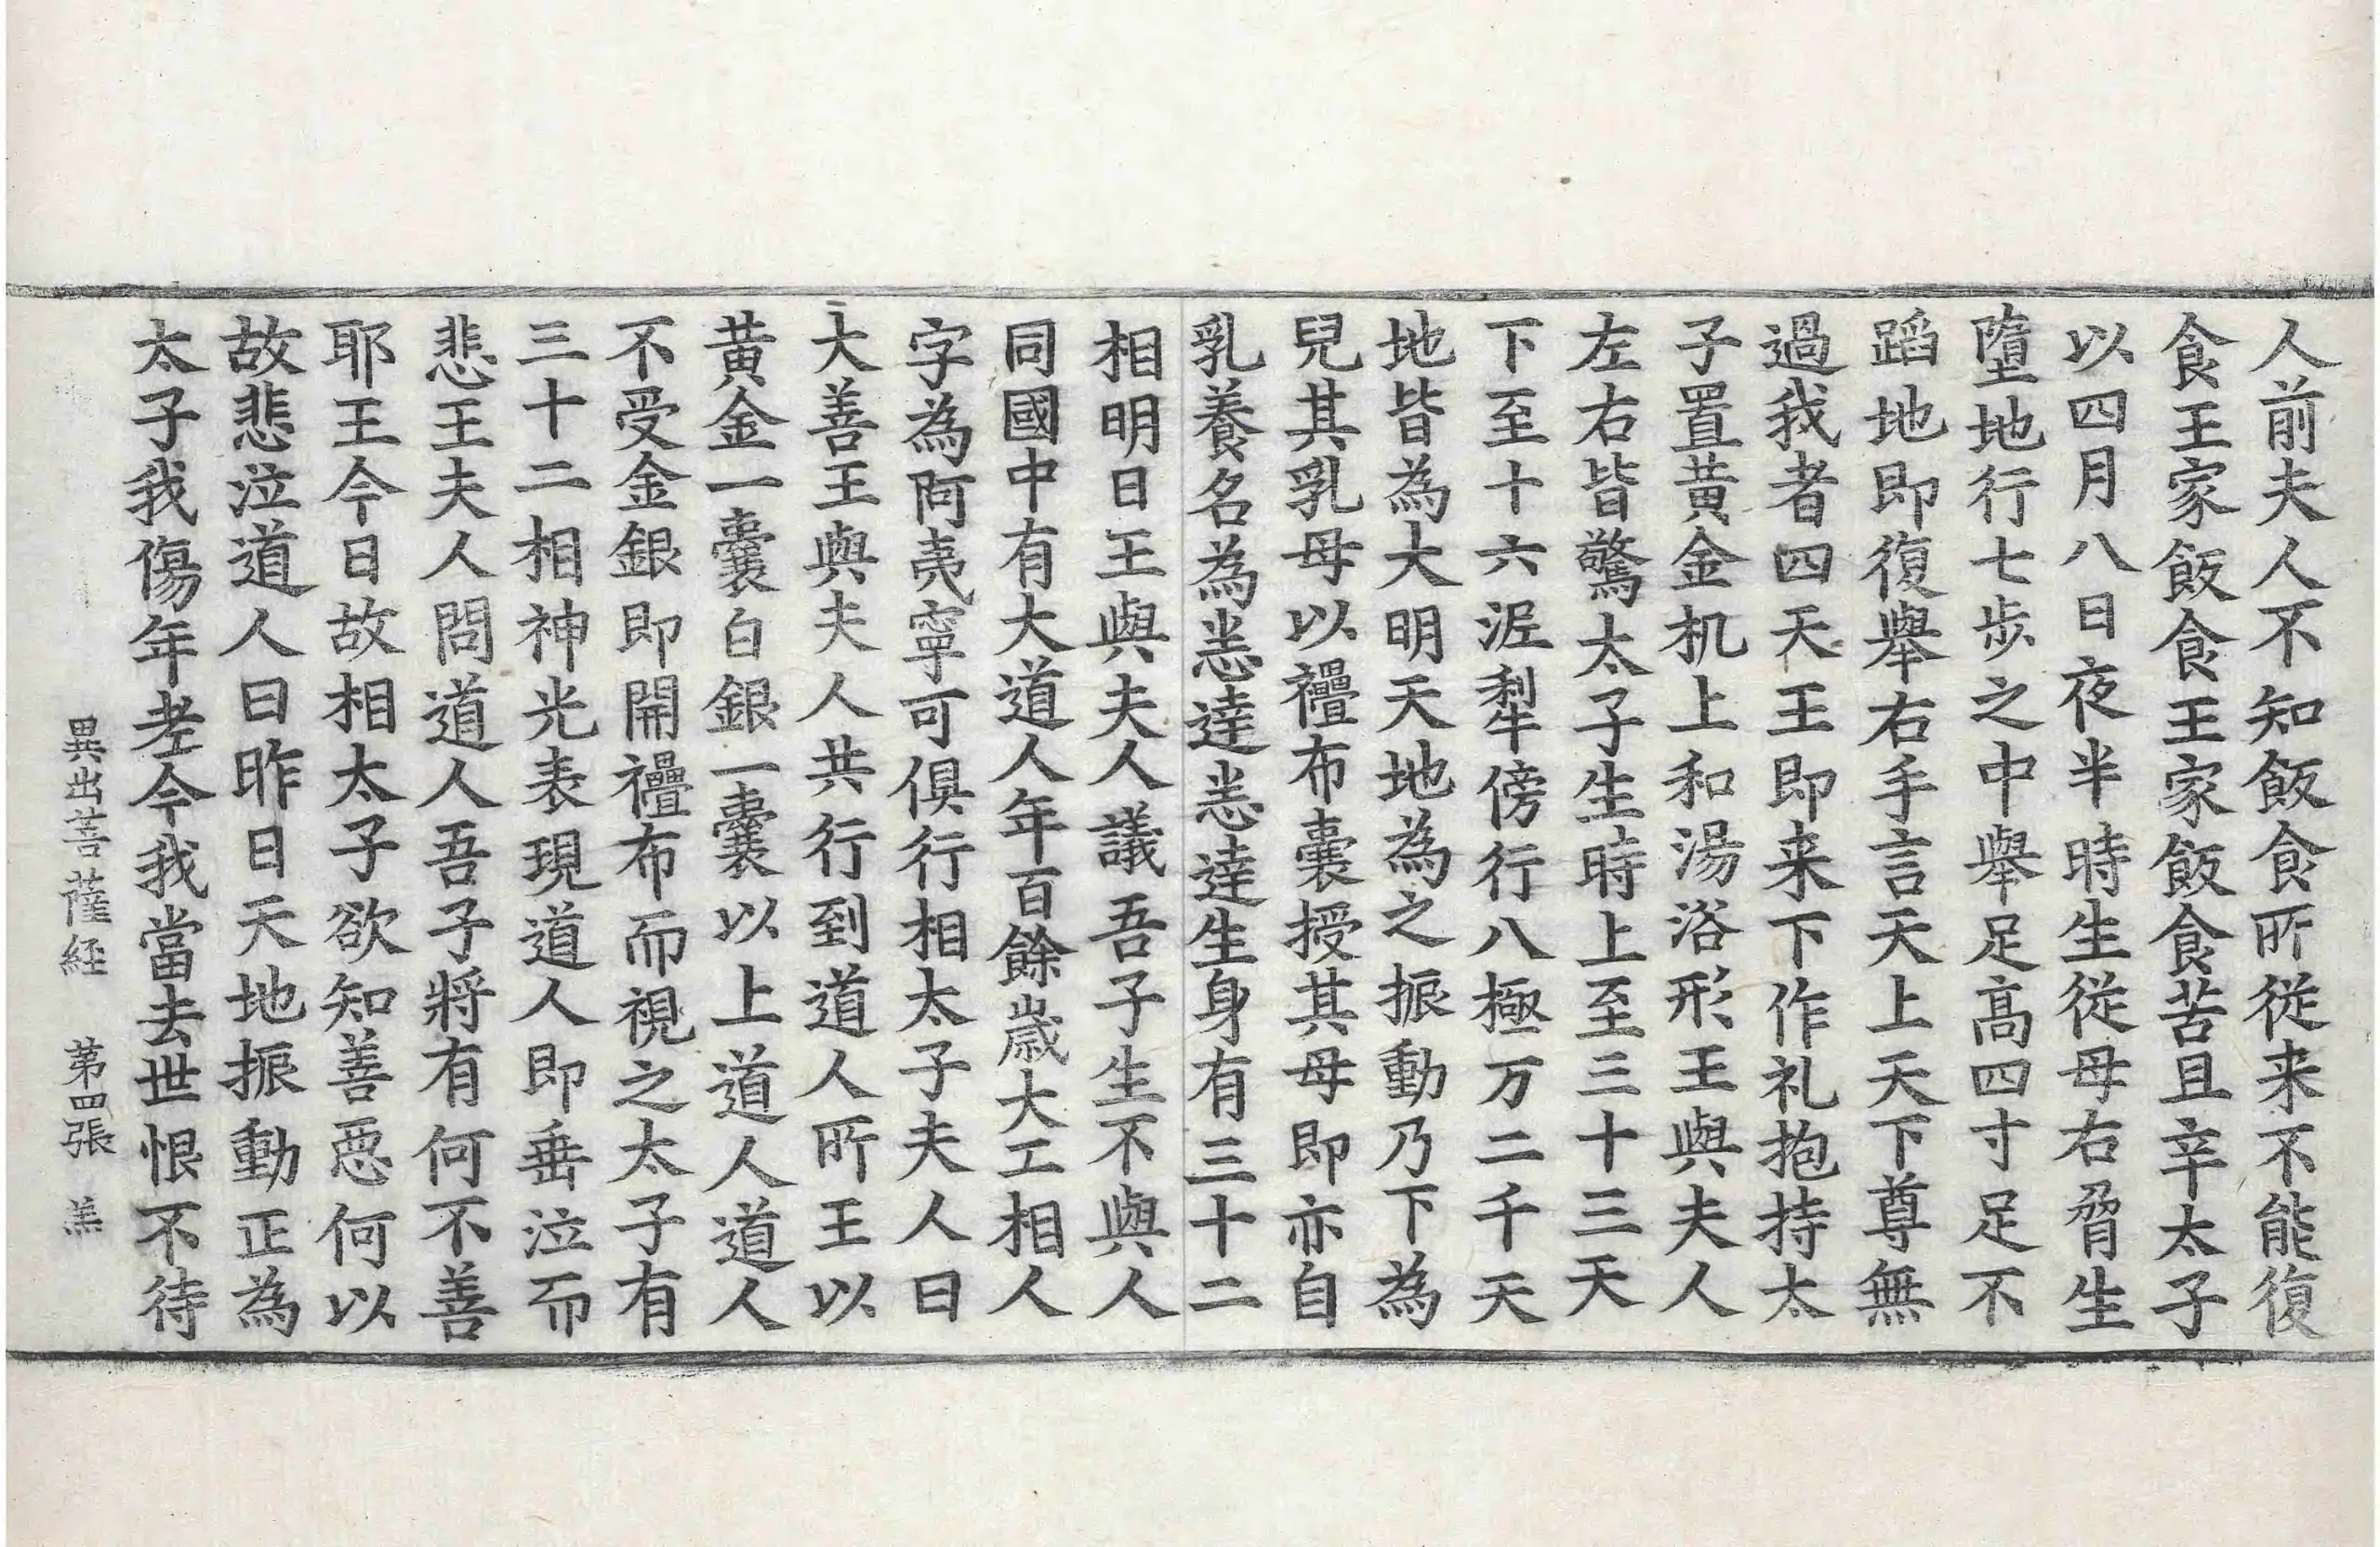 人前夫人不知飯食所從来不能復
食王家飯食王家飯食苦且辛太子
以四月八日夜半時生從母右脅生
墮地行七步之中舉足高四寸足不
蹈地即復舉右手言天上天下尊無
過我者四天王即来下作礼抱持太
子置黃金机上和湯浴形王與夫人
左右皆驚太子生時上至三十三天
下至十六泥犁傍行八極万二千天
地皆為大明天地為之振動乃下為
兒其乳母以㲲布囊授其母即亦自
乳養名為悉達悉達生身有三十二
相明日王與夫人議吾子生不與人
同國中有大道人年百餘歲大工相人
字為阿夷寧可俱行相太子夫人曰
大善王與夫人共行到道人所王以
黃金一囊白銀一囊以上道人道人
不受金銀即開㲲布而視之太子有
三十二相神光表現道人即垂泣而
悲王夫人問道人吾子將有何不善
耶王今日故相太子欲知善惡何以
故悲泣道人曰昨日天地振動正為
太子我傷年老今我當去世恨不待
異出菩薩経 第四張 羔